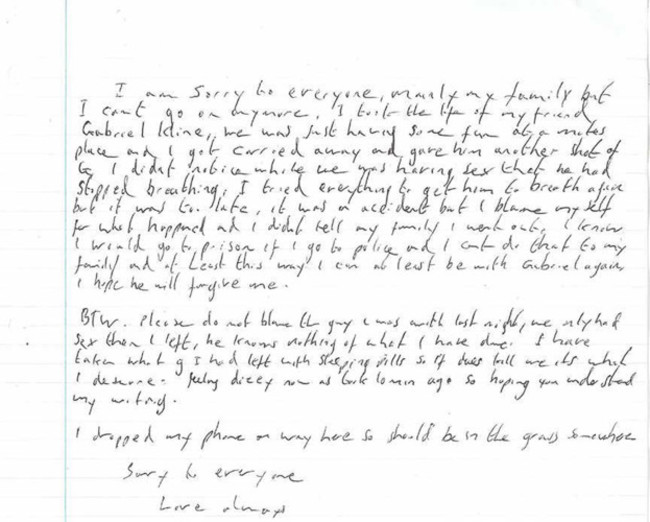 I am Sorry to everyone, mainly my family but
I cant go on anymore, I took the life of my friend
Gabriel Kline, we was just having some fun at a mates
place and I got carried away and gave him another shot of
G, I didnt notice while we was having sex that he had
Stopped breathing, I tried everything to get him to breath again
but it was to late, it was an accident but I blame myself
for what happened and I didnt tell my family I went out, I know
I would go to prison if I go to police and I cant do that to my
family and at least this way I can at least be with Gabriel again,
I hope he will forgive me.
BTW. Please do not blame the guy I was with last night, we only had
sex then I left, he knows nothing of what I have done. I have
taken what g I had left with sleeping pills so if it does kill me its what
I deserve. feeling dizzy now as took 10min ago so hoping you understand
my writing.
I dropped my phone on way here so should be in the grass somewhere
Sorry to everyone
Love always